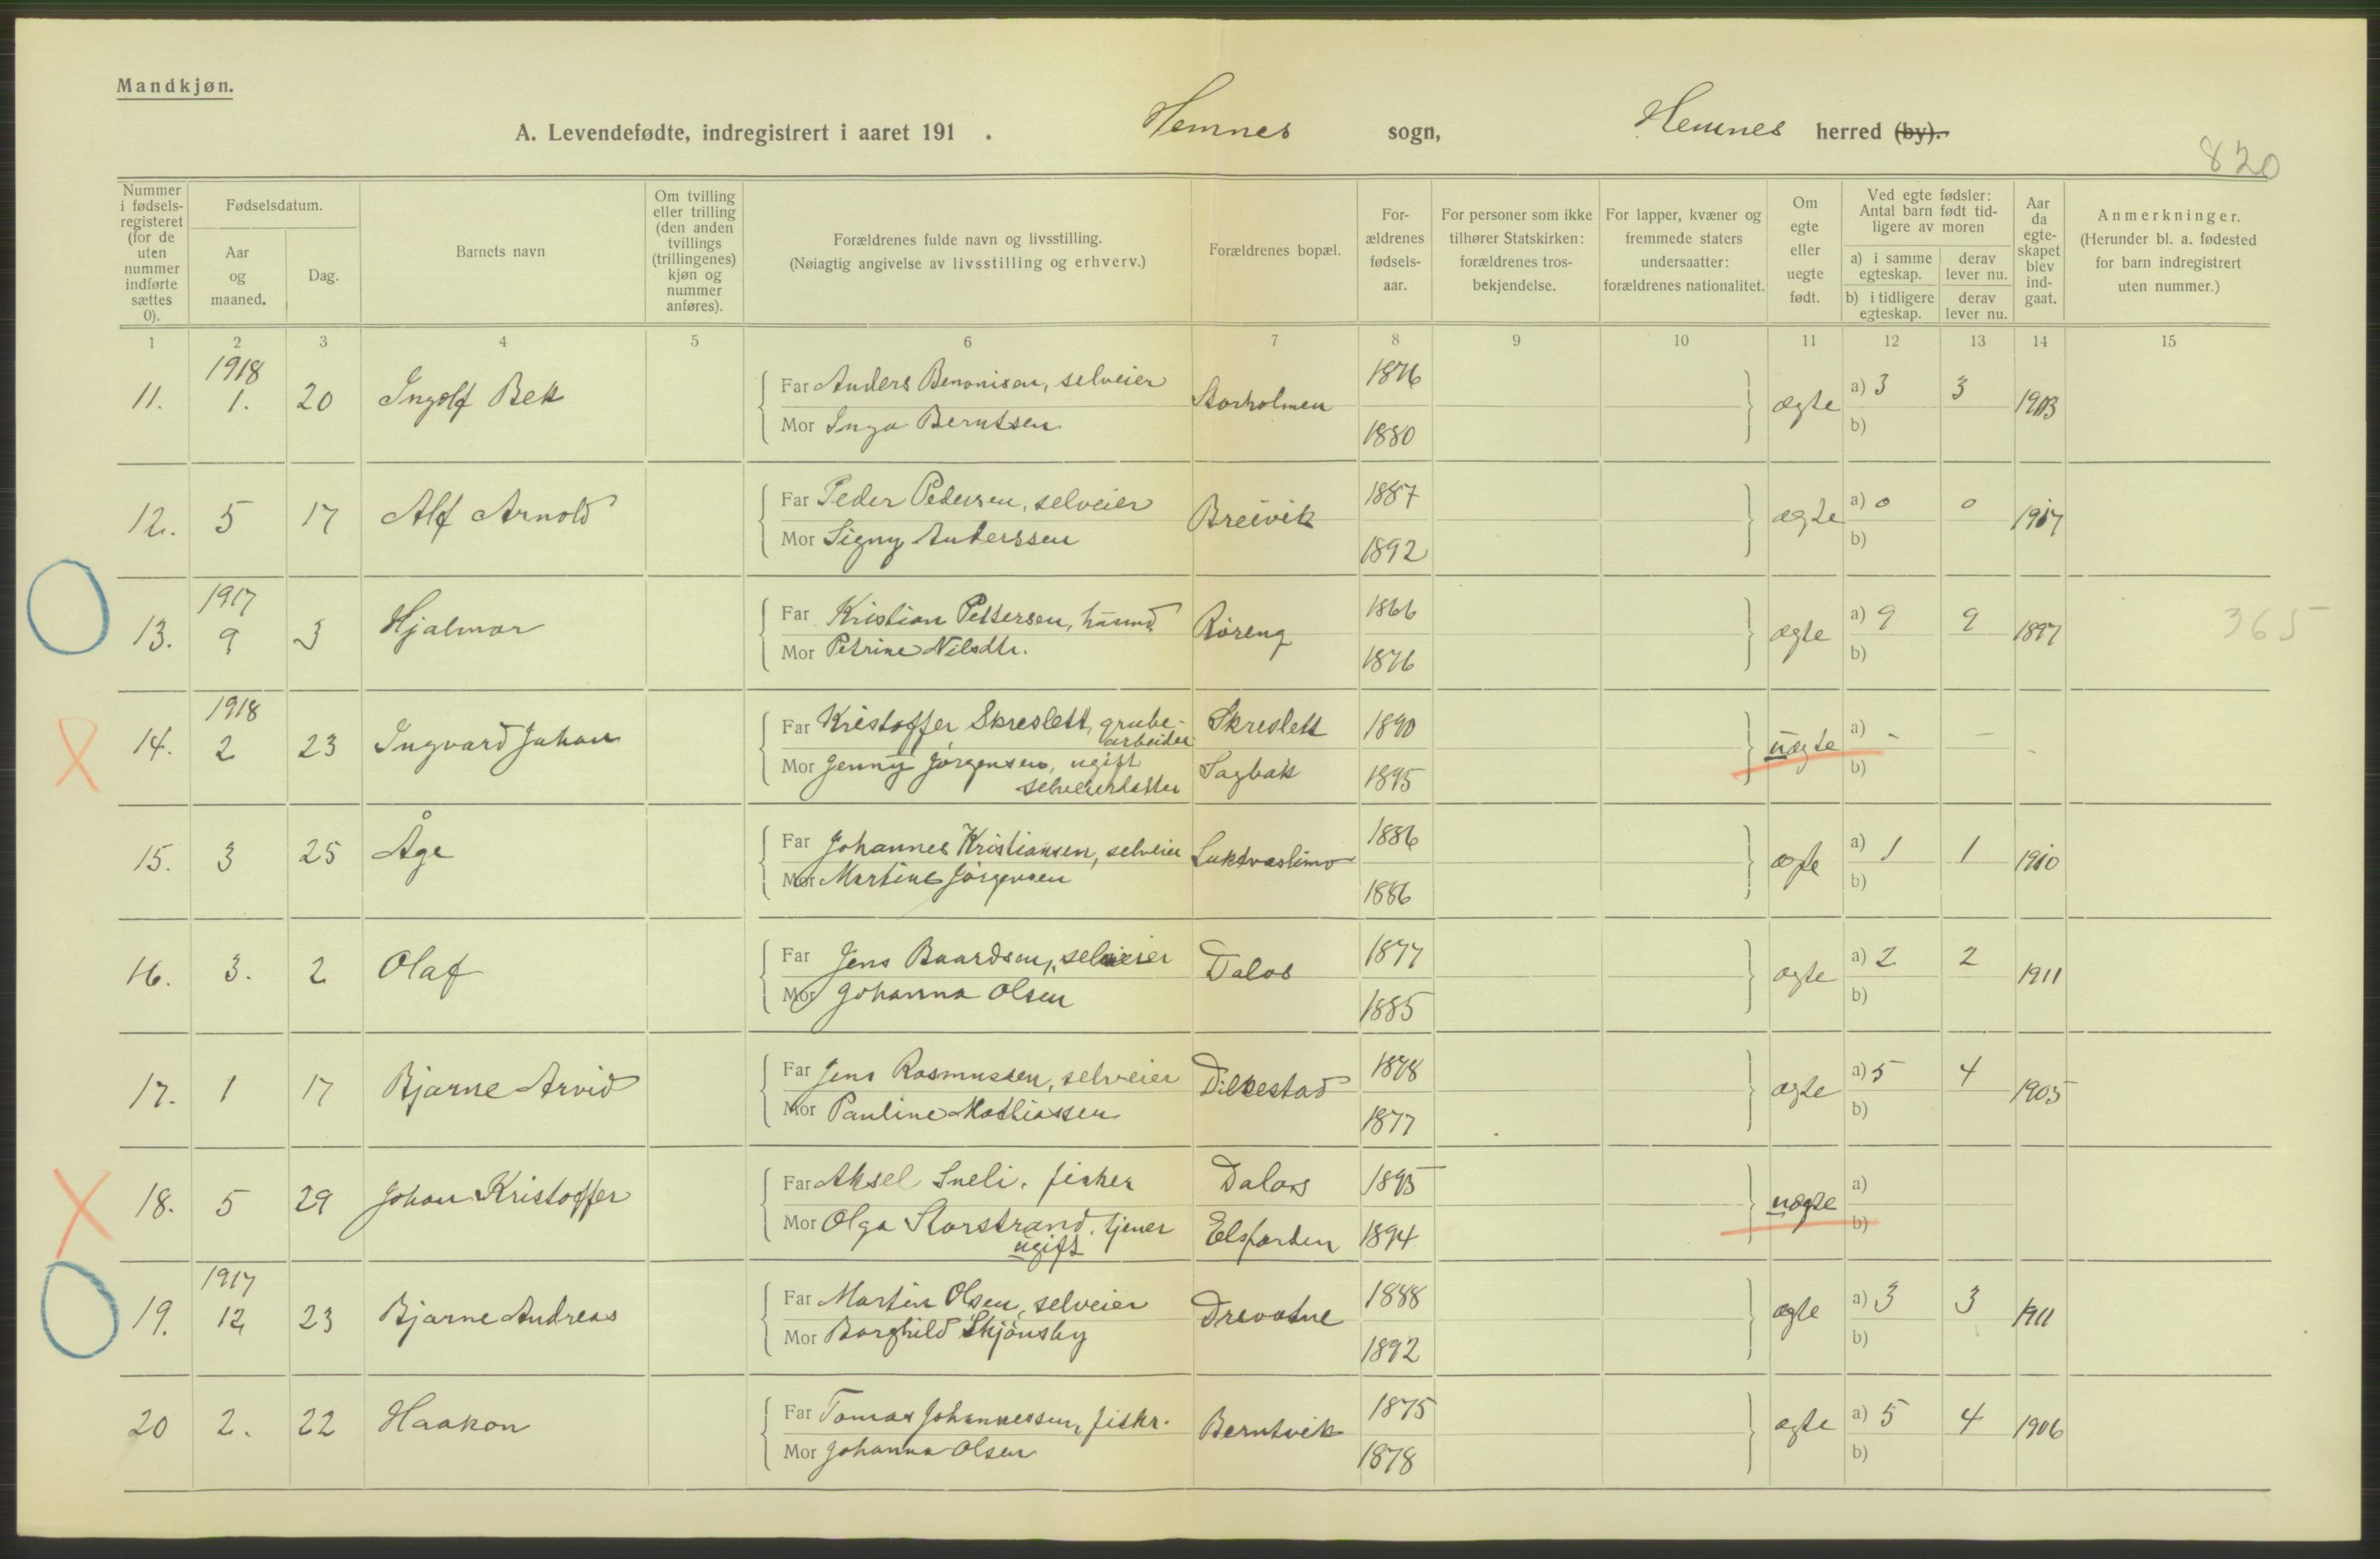 Mandkjøn.
A. Levendefødte, indregistrert i aaret 191 . Hemnes sogn, Hemnes herred (by).
820
Nummer i fødsels-registeret (for de uten nummer indførte sættes 0).
Fødselsdatum.
Aar og maaned.
Dag.
Barnets navn
Om tvilling eller trilling (den anden tvillings (trillingenes) kjøn og nummer anføres).
Forældrenes fulde navn og livsstilling.
(Nøiagtig angivelse av livsstilling og erhverv.)
Forældrenes bopæl.
For-ældrenes fødsels-aar.
For personer som ikke tilhører Statskirken: forældrenes tros-bekjendelse.
For lapper, kvæner og fremmede staters undersaatter: forældrenes nationalitet.
Om egte eller uegte født.
Ved egte fødsler: Antal barn født tid-ligere av moren
a) i samme egteskap.
derav lever nu.
b) i tidligere egteskap.
derav lever nu.
Aar da egte-skapet blev ind-gaat.
Anmerkninger.
(Herunder bl. a. fødested for barn indregistrert uten nummer.)
1 2 3 4 5 6 7 8 9 10 11 12 13 14 15
1918
11. 1. 20 Ingolf Bek Far Anders Benonisen, selveier Storholmen 1876 ægte a) 3 3 1903
Mor Inga Berntsen 1880 b)
12. 5 17 Alf Arnold Far Peder Pedersen, selveier Breivik 1887 ægte a) 0 0 1917
Mor Signy Anderssen 1892 b)
1917
13. 9 3 Hjalmar Far Kristian Pettersen, husmd. Røreng 1866 ægte a) 9 9 1897 365
Mor Petrine Nilsdtr. 1876 b)
1918
14. 2 23 Ingvard Johan Far Kristoffer Skreslett, grube-arbeider Skreslett 1890 uægte a) - - -
Mor Jenny Jørgensen, ugift selveierdatter Sagbak 1895 b)
15. 3 25 Åge Far Johannes Kristiansen, selveier Luktvaslimo 1886 ægte a) 1 1 1910
Mor Martine Jørgensen 1886 b)
16. 3. 2 Olaf Far Jens Baardsen, selveier Dalos 1877 ægte a) 2 2 1911
Mor Johanna Olsen 1885 b)
17. 1 17 Bjarne Arvid Far Jens Rasmussen, selveier Dilkestad 1878 ægte a) 5 4 1905
Mor Pauline Mathiassen 1877 b)
18. 5 29 Johan Kristoffer Far Aksel Sneli. fisker Dalos 1895 uægte a)
Mor Olga Storstrand. tjener ugift Elsfjorden 1894 b)
1917
19. 12 23 Bjarne Andreas Far Martin Olsen, selveier Drevatne 1888 ægte a) 3 3 1911
Mor Borghild Skjønsby 1892 b)
20 2. 22 Haakon Far Tomas Johannessen, fiskr. Berntvik 1875 ægte a) 5 4 1906
Mor Johanna Olsen 1878 b)